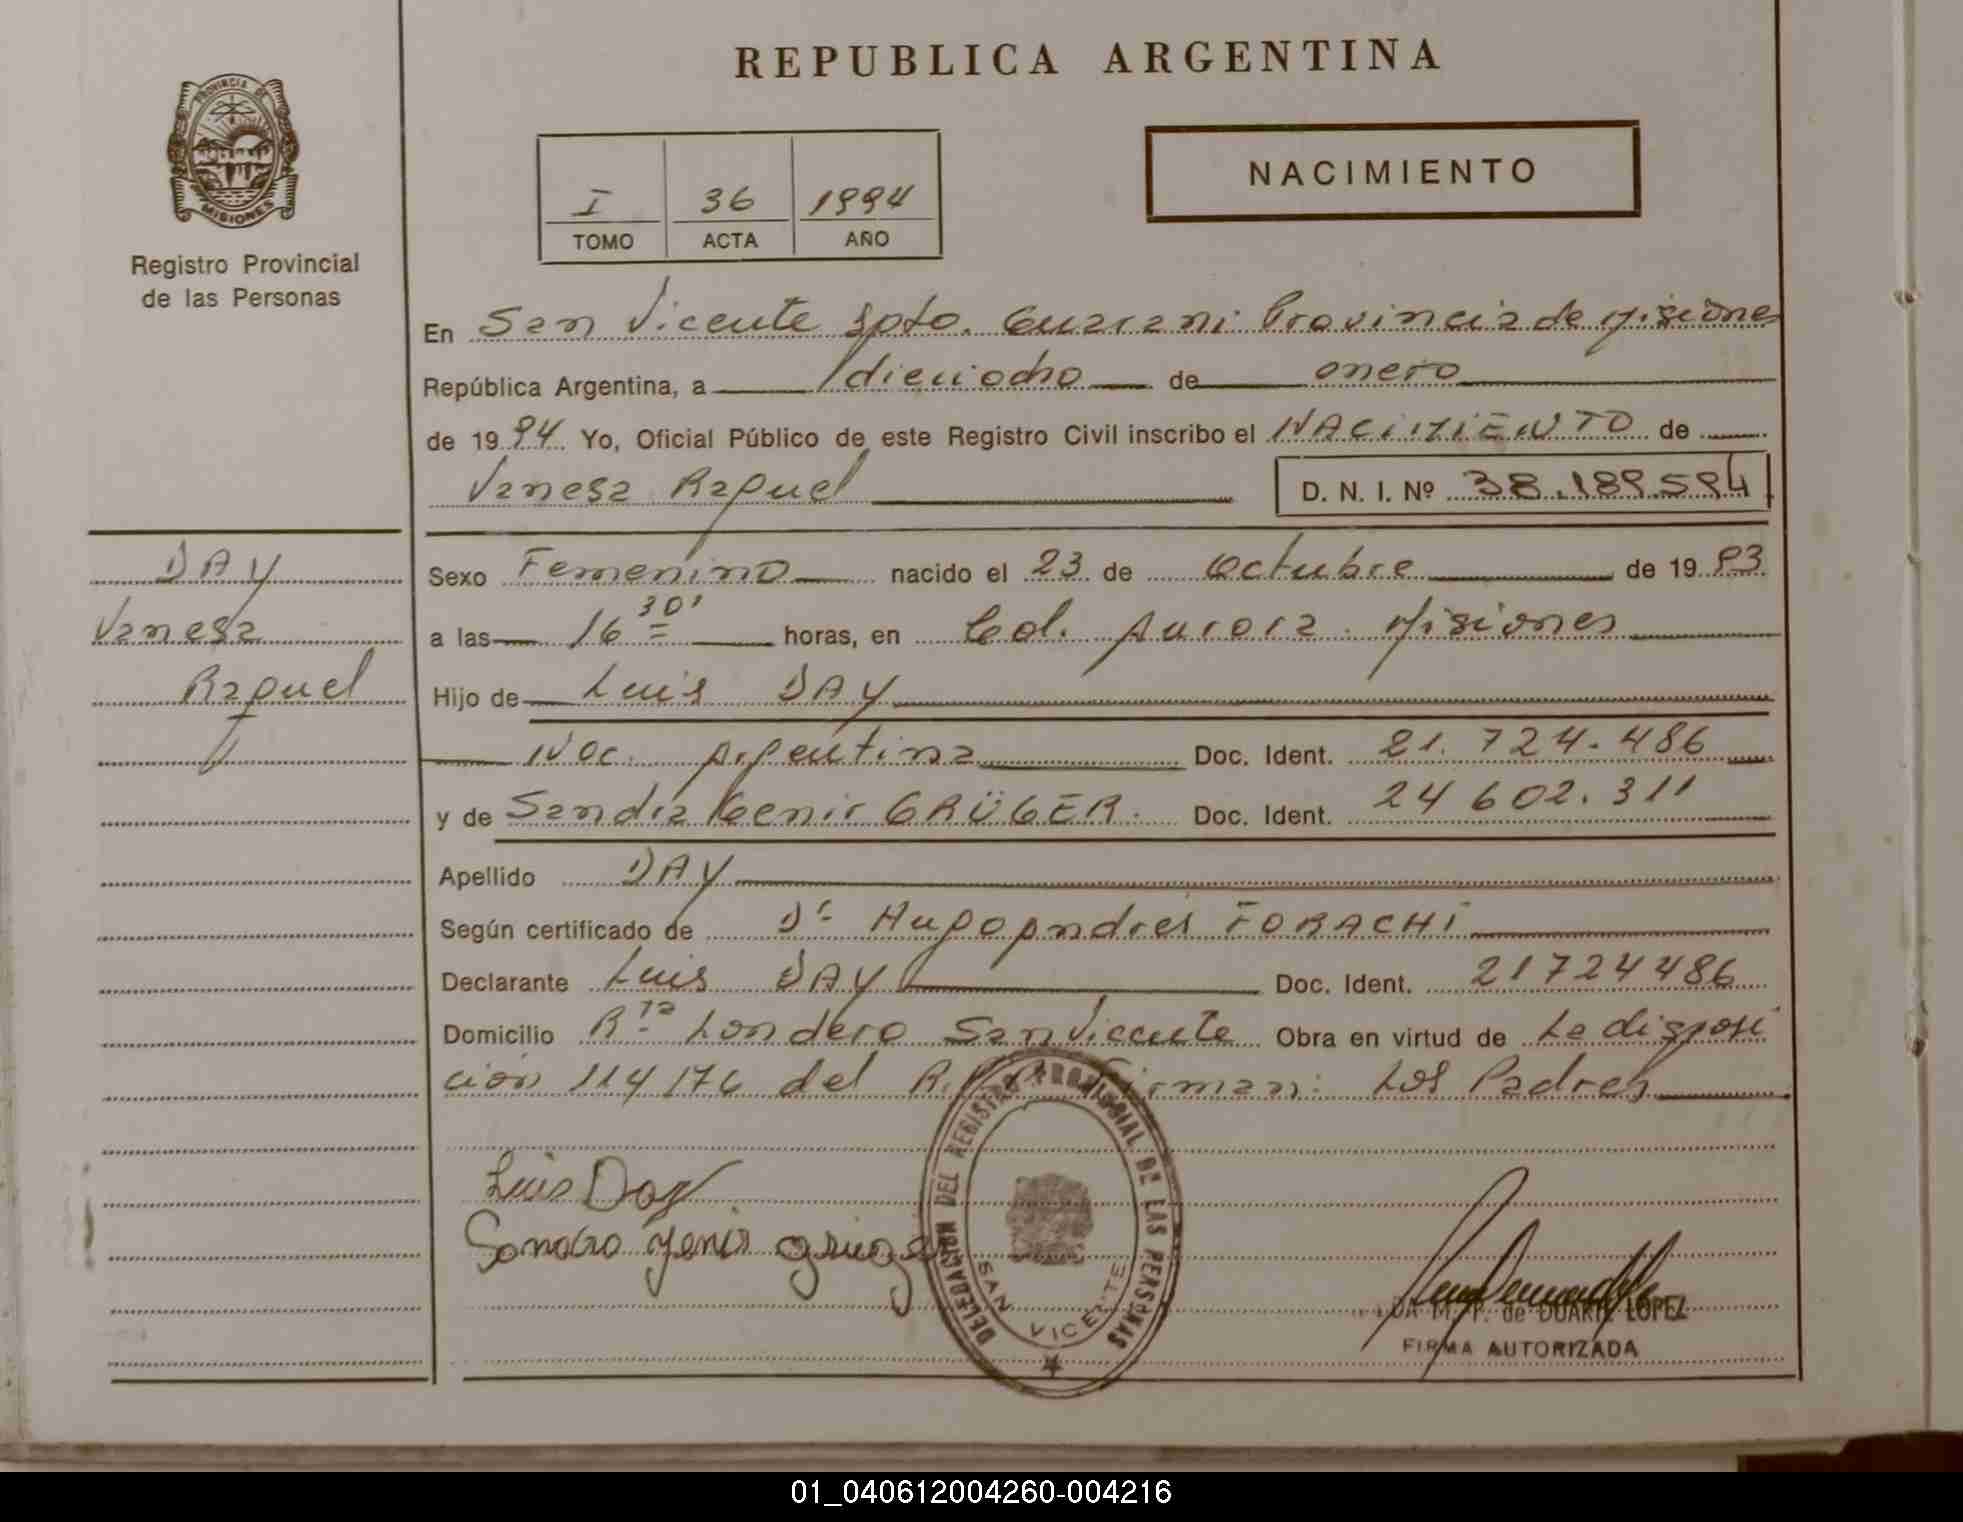 REPUBLICA ARGENTINA
PROVINCIA DE
MISIONES
Registro Provincial
de las Personas
I 36 1994
TOMO ACTA AÑO
NACIMIENTO
En San Vicente Dpto. Guarani Provincia de Misiones
República Argentina, a dieciocho de enero
de 1994 Yo, Oficial Público de este Registro Civil inscribo el NACIMIENTO de
Vanesa Raquel D. N. I. Nº 38.189.594
DAY
Vanesa
Raquel
Sexo Femenino nacido el 23 de Octubre de 1993
a las 16 30' horas, en Col. Aurora. Misiones
Hijo de Luis DAY
Nac. Argentina Doc. Ident. 21.724.486
y de Sandra Genir GRÜGER. Doc. Ident. 24 602.311
Apellido DAY
Según certificado de Dr Hugo Andrés FORACHI
Declarante Luis DAY Doc. Ident. 21724486
Domicilio Rta Londero San Vicente Obra en virtud de La disposi
ción 114/76 del Firman: Los Padres
Luis Day
Sandra
DELEGACION DEL REGISTRO PROVINCIAL DE LAS PERSONAS
SAN VICENTE
DA M. P. de DUARTE LOPEZ
FIRMA AUTORIZADA
01_040612004260-004216